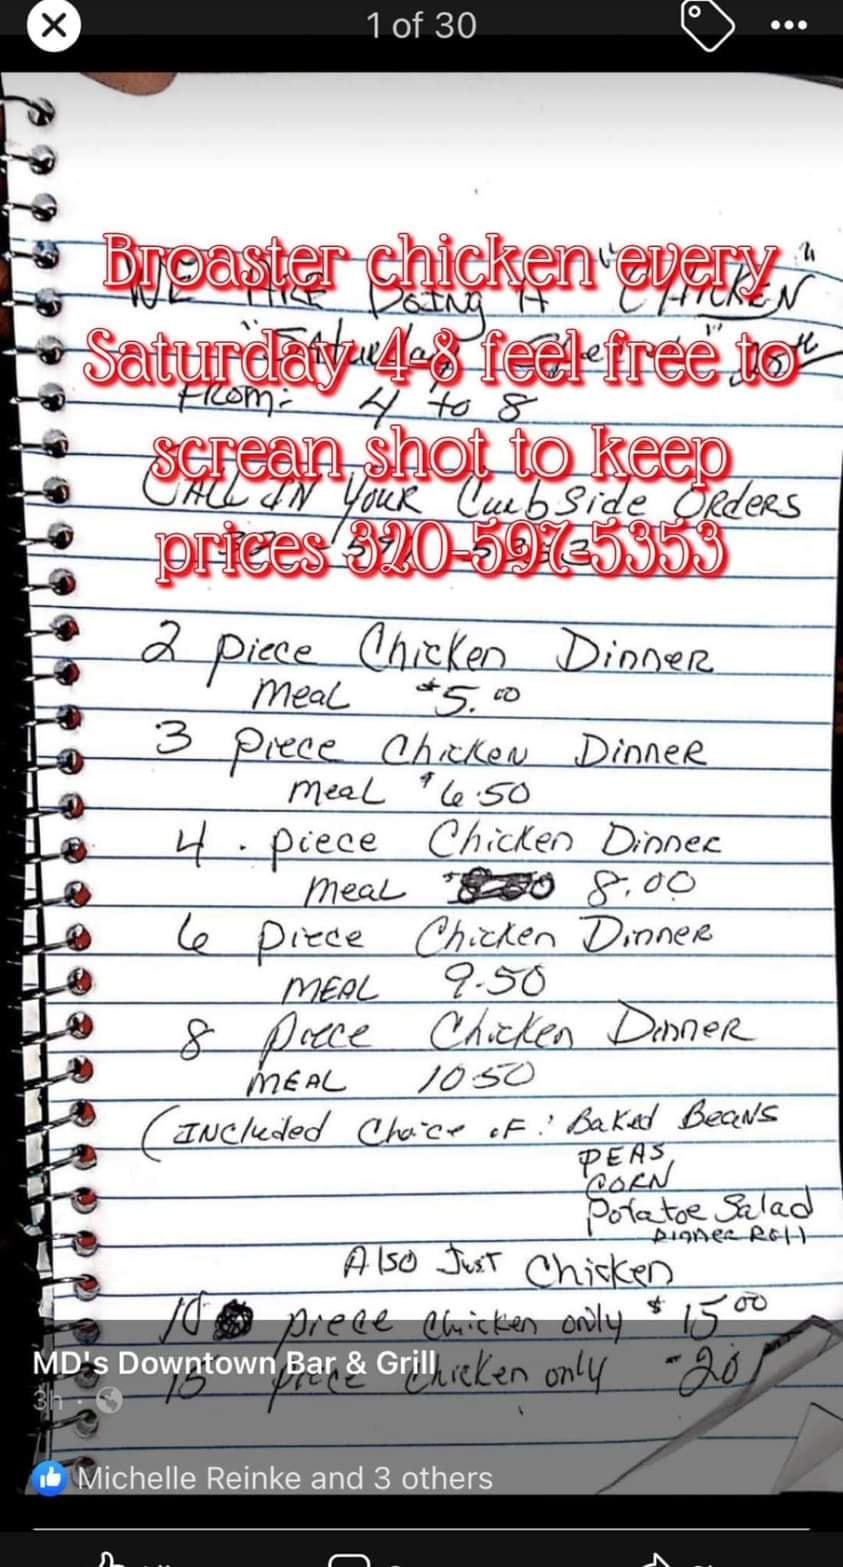 1 of 30
Broaster chicken every
WE ARE Doing it "CHICKEN"
Saturday 4-8 feel free to
"Saturday
From: 4 to 8
screan shot to keep
CALL IN YOUR CurbSide ORDERS
prices 320-597-5353
2 piece Chicken Dinner
meal $5.00
3 piece Chicken Dinner
meal $6.50
4. piece Chicken Dinner
meal 8.00
6 piece Chicken Dinner
MEAL 9.50
8 piece Chicken Dinner
MEAL 10 50
(INCluded Choice OF: BaKed BeaNS
PEAS,
CORN
Potatoe Salad
DINNER Roll
Also Just Chicken
10 piece chicken only $15 00
MD's Downtown Bar & Grill
15 piece chicken only
3h ·
Michelle Reinke and 3 others